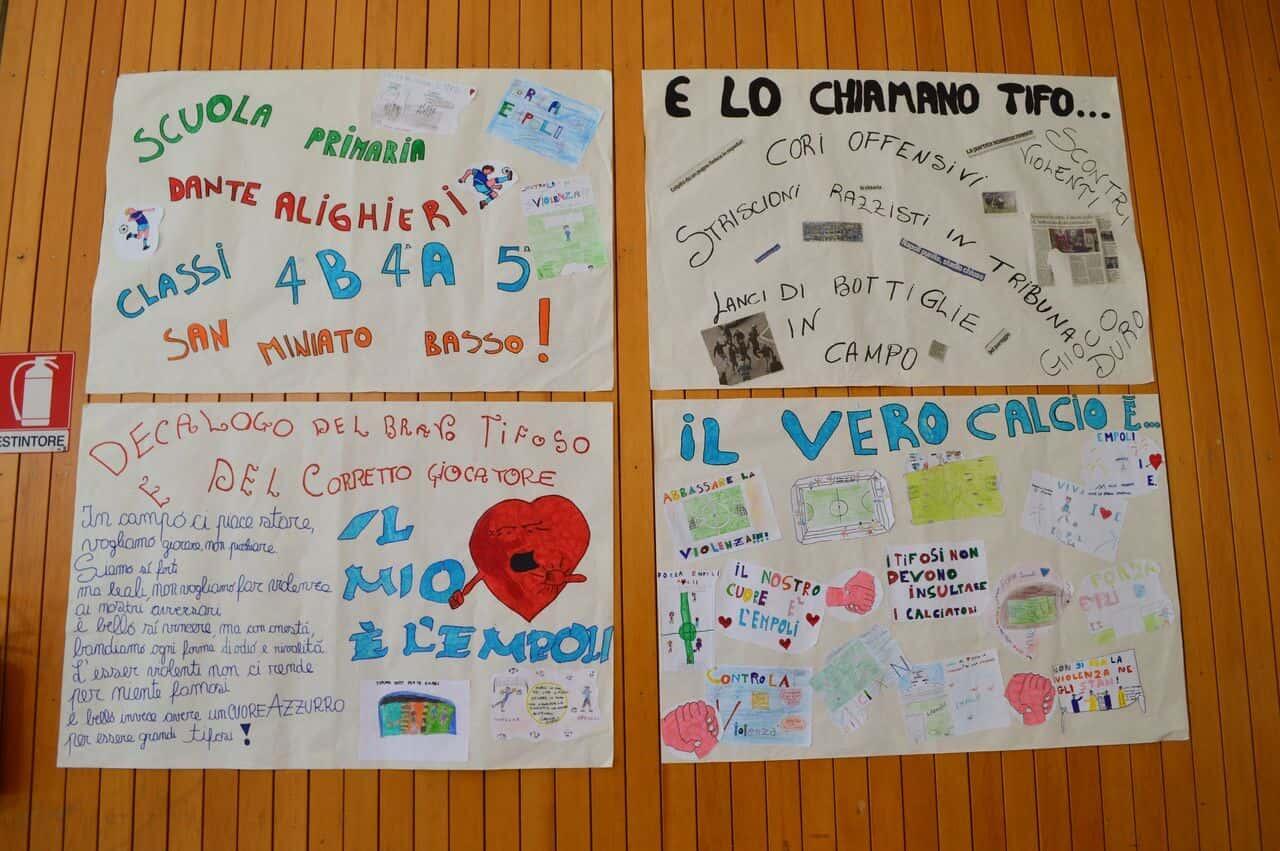 SCUOLA PRIMARIA
DANTE ALIGHIERI
CLASSI 4B 4ªA 5ª
SAN MINIATO BASSO!
CONTRO LA
VIOLENZA
E LO CHIAMANO TIFO...
CORI OFFENSIVI
SCONTRI
VIOLENTI
STRISCIONI RAZZISTI IN TRIBUNA
LANCI DI BOTTIGLIE
IN
CAMPO
GIOCO
DURO
ESTINTORE
DECALOGO DEL BRAVO TIFOSO
E DEL CORRETTO GIOCATORE
In campo ci piace stare,
vogliamo giocare, non picchiare.
Siamo sì forti
ma leali, non vogliamo far violenza
ai nostri avversari
è bello sì vincere, ma con onestà
bandiamo ogni forma di odio e rivalità.
L'esser violenti non ci rende
per niente famosi
è bello invece avere un CUORE AZZURRO
per essere grandi tifosi!
IL
MIO
È L'EMPOLI
IL VERO CALCIO È...
ABBASSARE LA
VIOLENZA!!!!
EMPOLI
VIVA
FORZA EMPOLI
IL NOSTRO
CUORE È
L'EMPOLI
I TIFOSI NON
DEVONO
INSULTARE
I CALCIATORI
FORZA
CONTRO LA
Violenza
NON SI USA LA
VIOLENZA NE
GLI STADI!